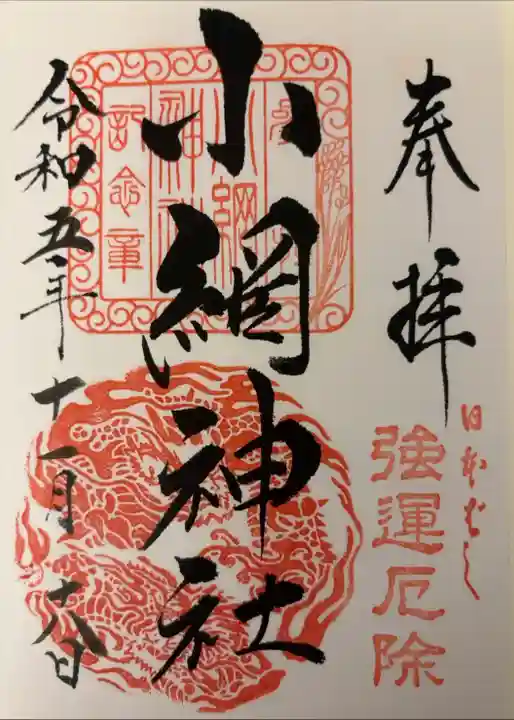 奉拝
日本ばし
強運厄除
小網神社
小網
神社
記念章
令和五年十一月十八日